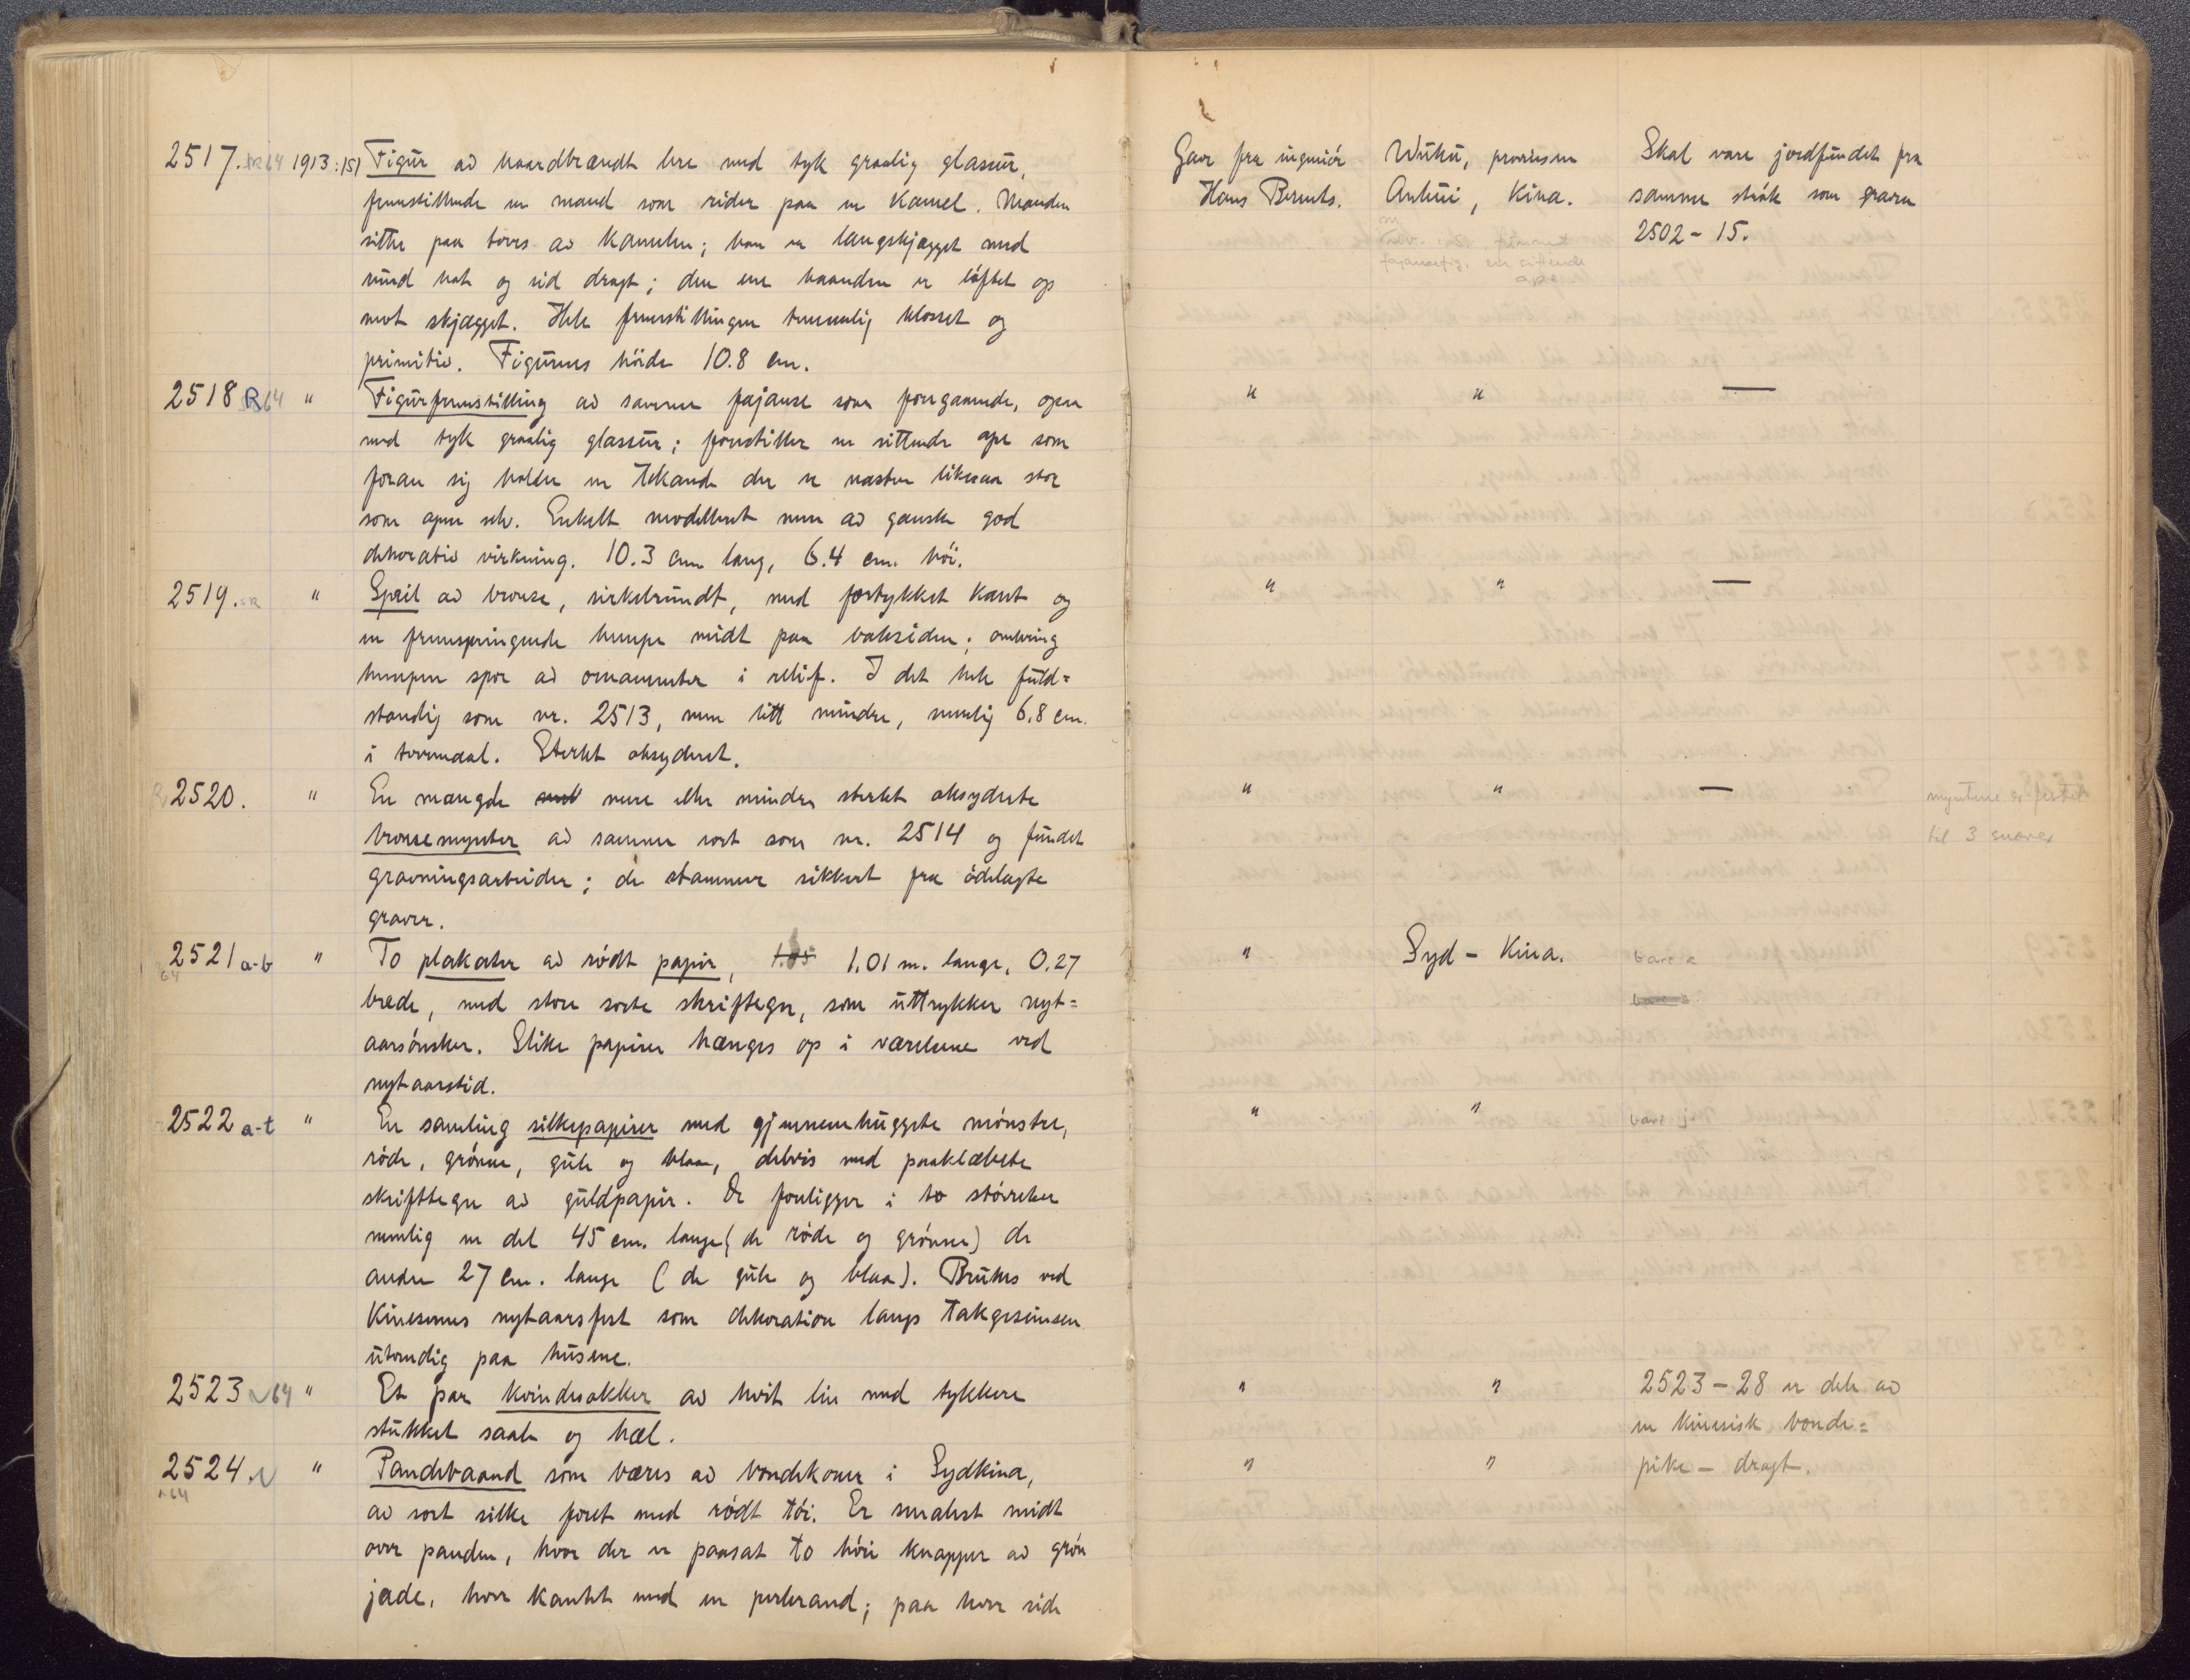 2517. R 64 1913:151 Figur av haardbrændt lere med tyk graalig glassur,
fremstillende en mand som rider paa en Kamel. Manden
sitter paa tvers av Kamelen; han er langskjægget med
rund hat og sid dragt; den ene haanden er løftet op
mot skjægget. Hele fremstillingen temmelig klosset og
primitiv. Figurens høide 10.8 cm.
2518 R64 " Figurfremstilling av samme fajanse som foregaaende, ogsaa
med tyk graalig glassur; forestiller en sittende ape som
foran sig holder en Tekande der er næsten likesaa stor
som apen selv. Enkelt modellert men av ganske god
dekorativ virkning. 10.3 cm lang, 6.4 cm. høi.
2519. " Speil av bronse, sirkelrundt, med fortykket Kant og
en fremspringende hempe midt paa baksiden; omkring
hempen spor av ornamenter i relief. I det hele fuld=
stændig som nr. 2513, men litt mindre, nemlig 6.8 cm.
i tvermaal. Sterkt oksyderet.
R 2520. " En mængde med mere eller mindre sterkt oksyderte
bronsemynter av samme sort som nr. 2514 og fundet
gravningsarbeider; de stammer sikkert fra ødelagte
graver.
2521 a-b " To plakater av rødt papir, 1.85 1.01 m. lange, 0.27
64
brede, med store sorte skrifttegn, som uttrykker nyt=
aarsønsker. Slike papirer hænges op i værelsene ved
nytaarstid.
2522 a-t " En samling silkepapirer med gjennemhuggete mønstre,
røde, grønne, gule og blaa, delvis med paaklæbete
skrifttegn av guldpapir. De foreligger i to størrelser
nemlig en del 45 cm. lange (de røde og grønne) de
andre 27 cm. lange (de gule og blaa). Brukes ved
Kinesernes nytaarsfest som dekoration langs Takgesimsen
utvendig paa husene.
2523 N64 " Et par kvindesokker av hvit lin med tykkere
stukket saale og hæl.
2524 N " Pandebaand som bæres av bondekoner i Sydkina,
64
av sort silke foret med rødt tøi. Er smalest midt
over panden, hvor der er paasat to høie knapper av grøn
jade, hver kantet med en perlerand; paa hver side
Gave fra ingeniør Wuhu, provinsen Skal være jordfundet fra
Hans Berents. Anhui, Kina. samme strøk som graven
2502-15.
en sittende
ape
" " —
" " —
" " — myntene er festet
til 3 snorer
" Syd-Kina. bare a
bare a
" " bare j
" " 2523-28 er dele av
en kinesisk bonde=
" " pike-dragt.